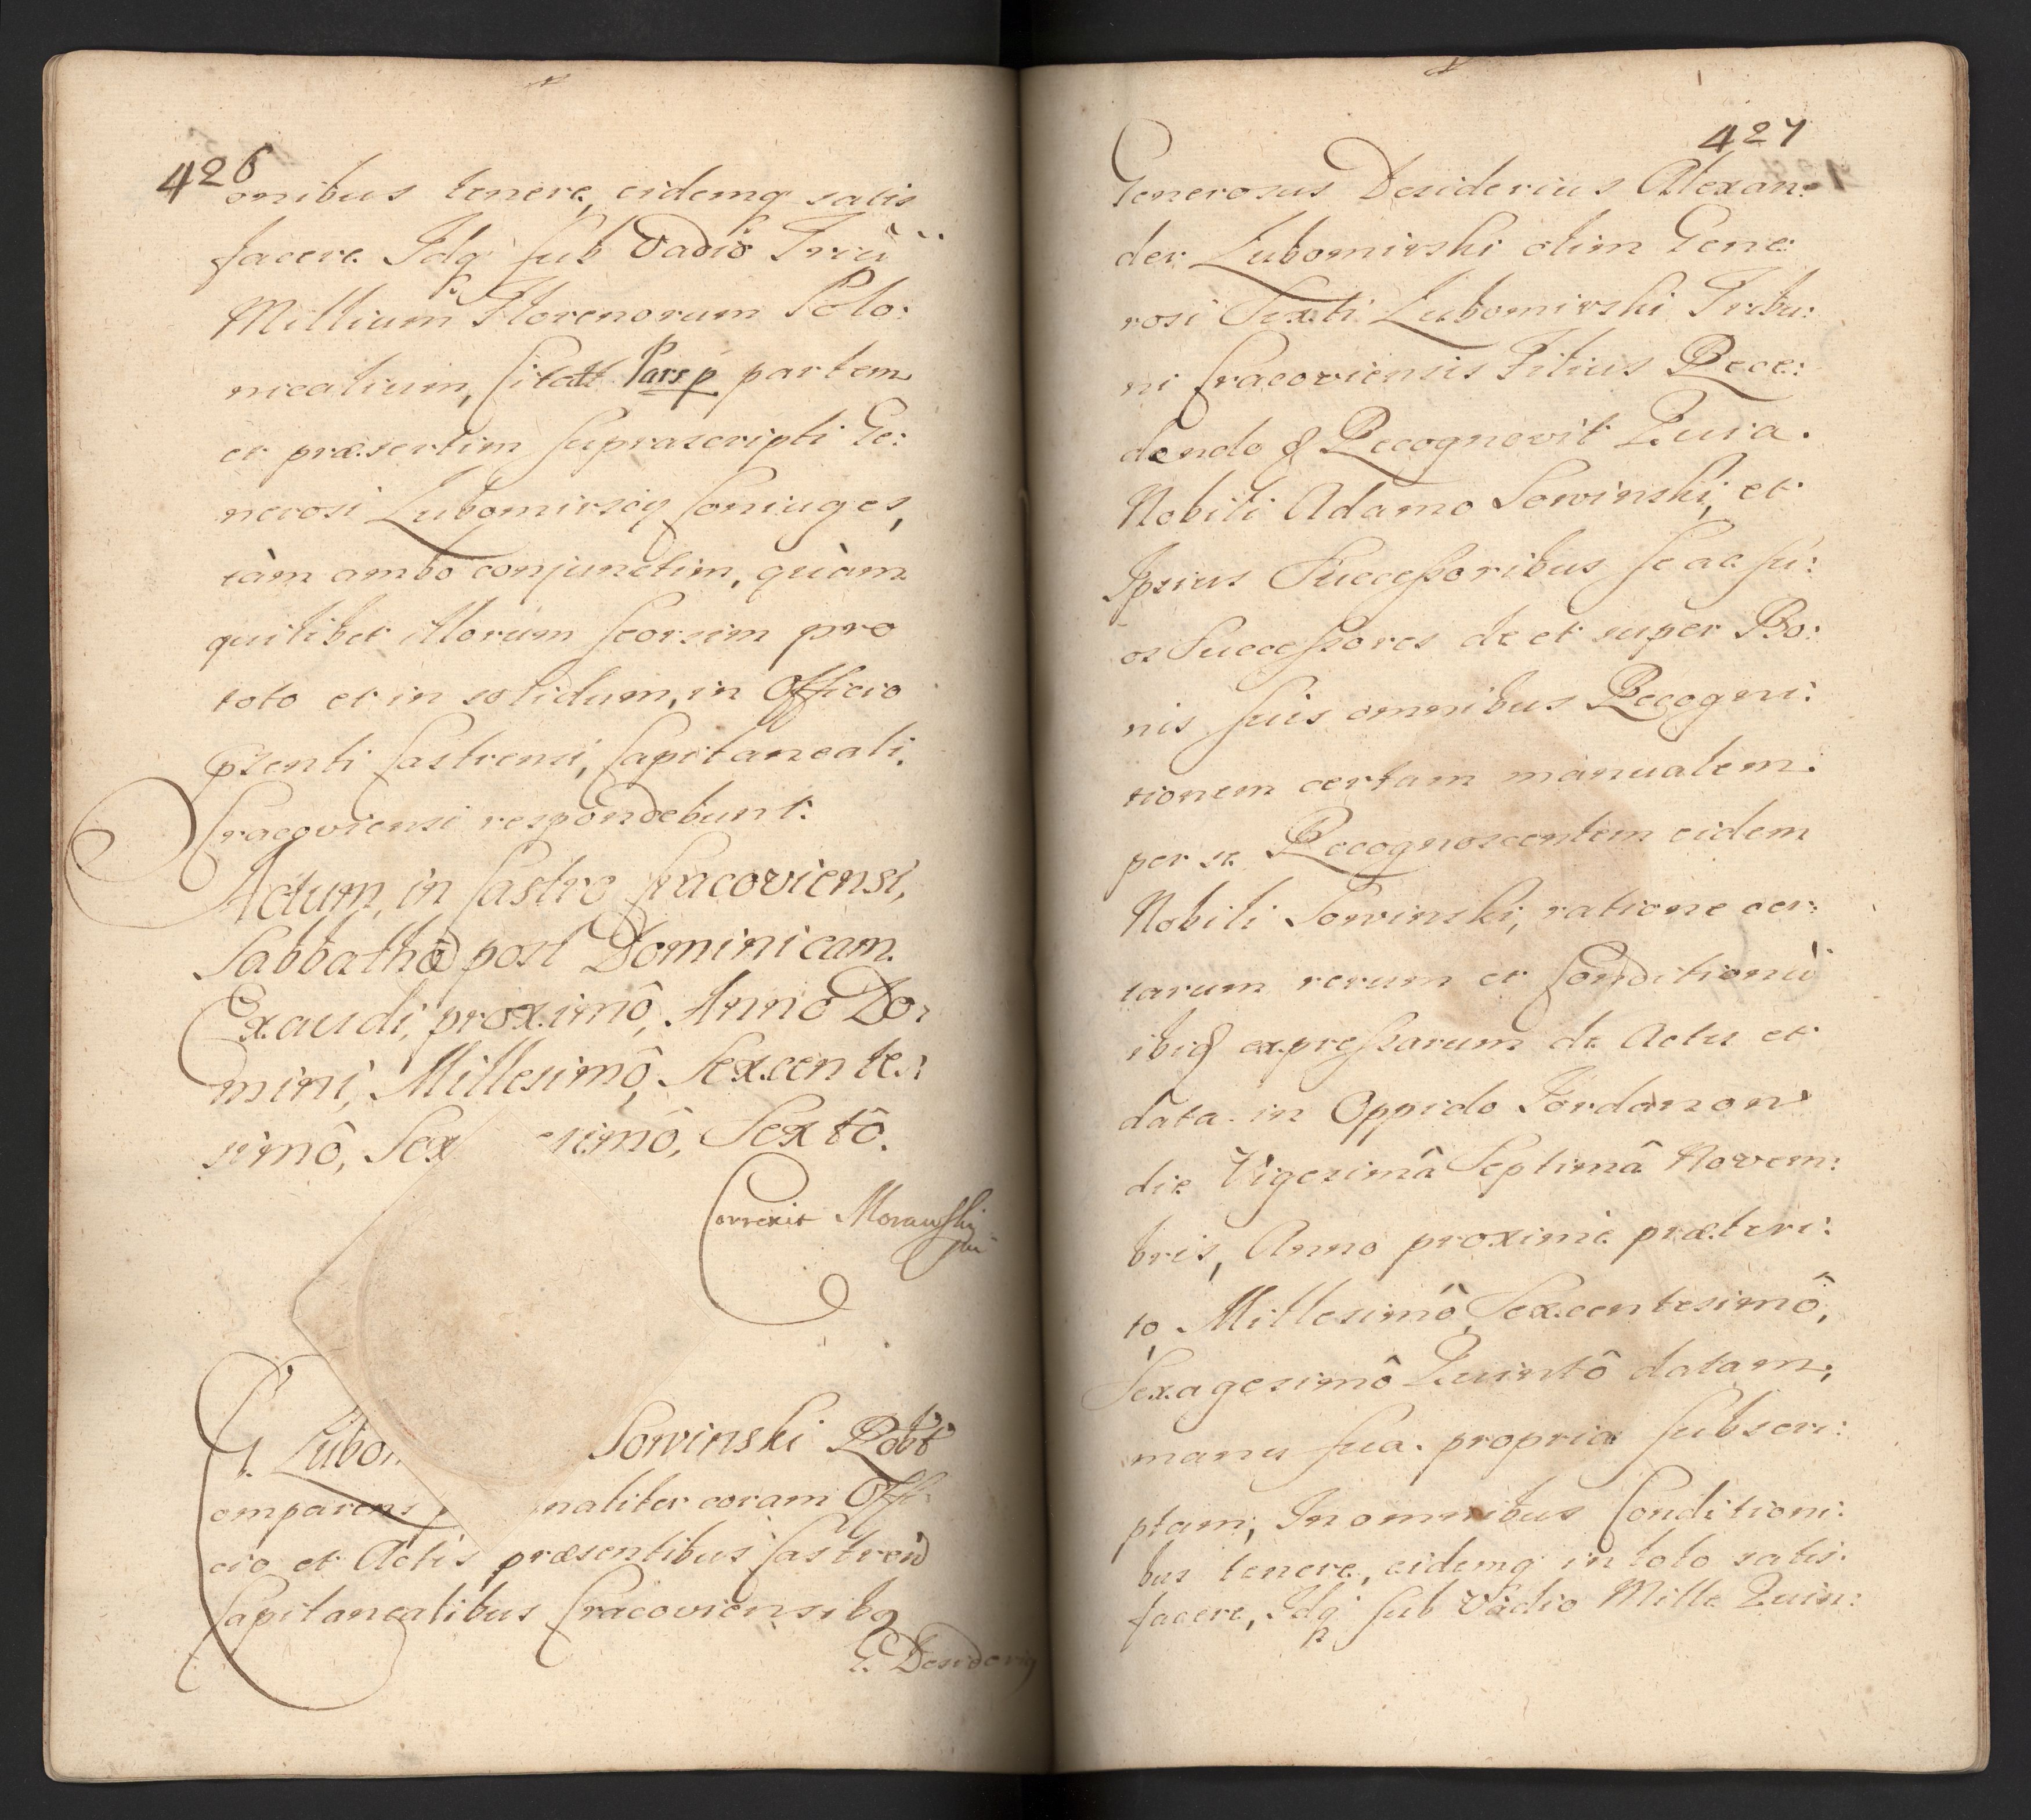 426
onibus tenere, eidemq satis
facere. Idq sub Vadio Triū
Millium Florenorum Polo:
nicalium, Citatt Pars p partem
et præsertim suprascripti Ge:
nerosi Lubomirscy Coniuges,
tàm ambo conjunctim, quàm
quilibet illorum seorsim pro
toto et in solidum, in Officio
pzenti Castrensi, Capitaneali,
Cracoviensi respondebunt.
Actum, in Castro Cracoviensi,
Sabbatho post Dominicam
Exaudi, proximô, Anno Do:
mini, Millesimô, Sexcente:
simô, Sex esimô, Sextô.
Correxit Morawski
G. Lubom Sowinski Robt
omparens naliter coram Offi
cio et Actis præsentibus Castren
Capitanealibus Cracoviensibq
G. Desideriq
427
Generosus Desiderius Alexan:
der Lubomirski olim Gene:
rosi Sexti Lubomirski Tribu:
ni Cracoviensis Filius Rece:
dendo & Recognovit Quia.
Nobili Adamo Sowinski, et
Ipsius Successoribus se ac su:
os Successores de et super Bo:
nis suis omnibus Recogni:
tionem certam manualem.
per se Recognoscentem eidem
Nobili Sowinski, ratione cer:
tarum rerum et Conditionū
ibiq expressarum de Actu et
data in Oppido Jordanow
die Vigesimâ Septimâ Novem:
bris, Anno proxime præteri:
to Millesimô, Sexcentesimô,
Sexagesimô Quintô datam,
manu sua propria subscri:
ptam, In omnibus Conditioni:
bus tenere, eidemq in toto satis:
facere, Idq sub Vadio Mille Quin: